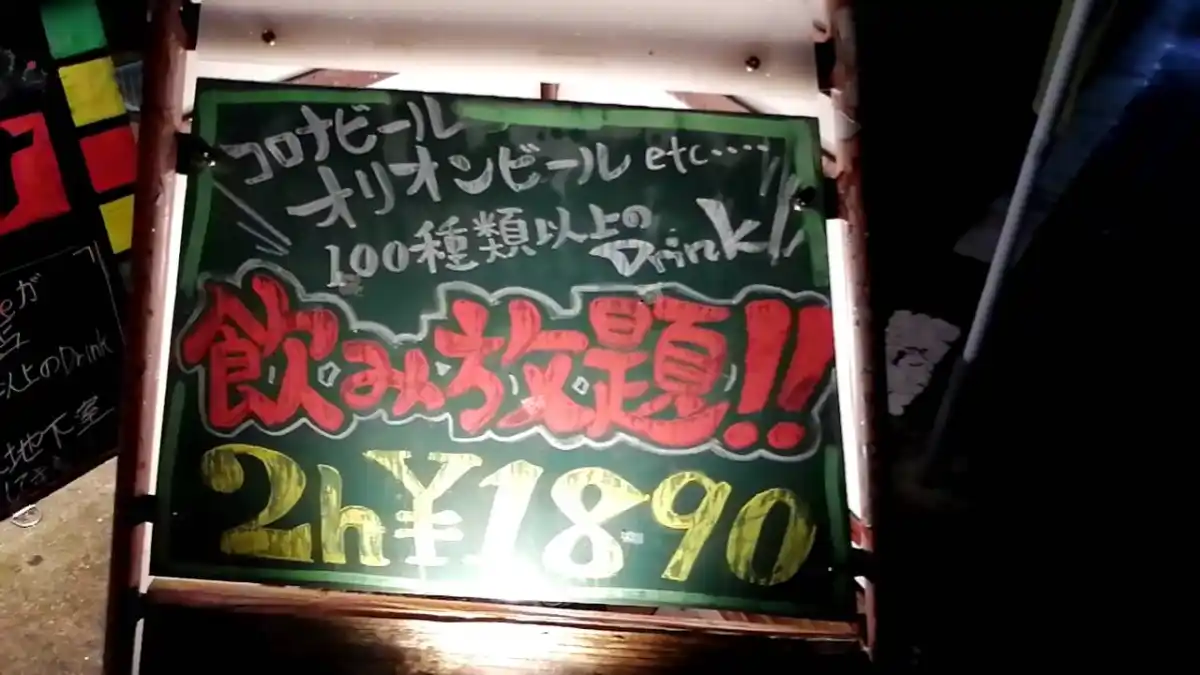 コロナビール
オリオンビール etc....
100種類以上の Drink!!
飲み放題!!
2h ¥1890
が
以上のDrink
地下室